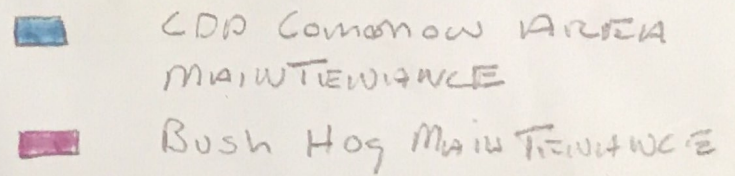 CDD Common AREA
MAINTENANCE
Bush Hog MAINTENANCE